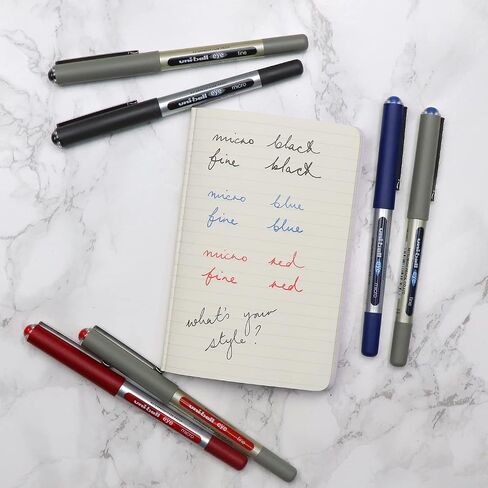 uni-ball eye fine
uni-ball eye micro
micro black
fine black
micro blue
fine blue
micro red
fine red
what's your
style?
uni-ball eye micro
uni-ball eye fine
uni-ball eye micro
uni-ball eye fine